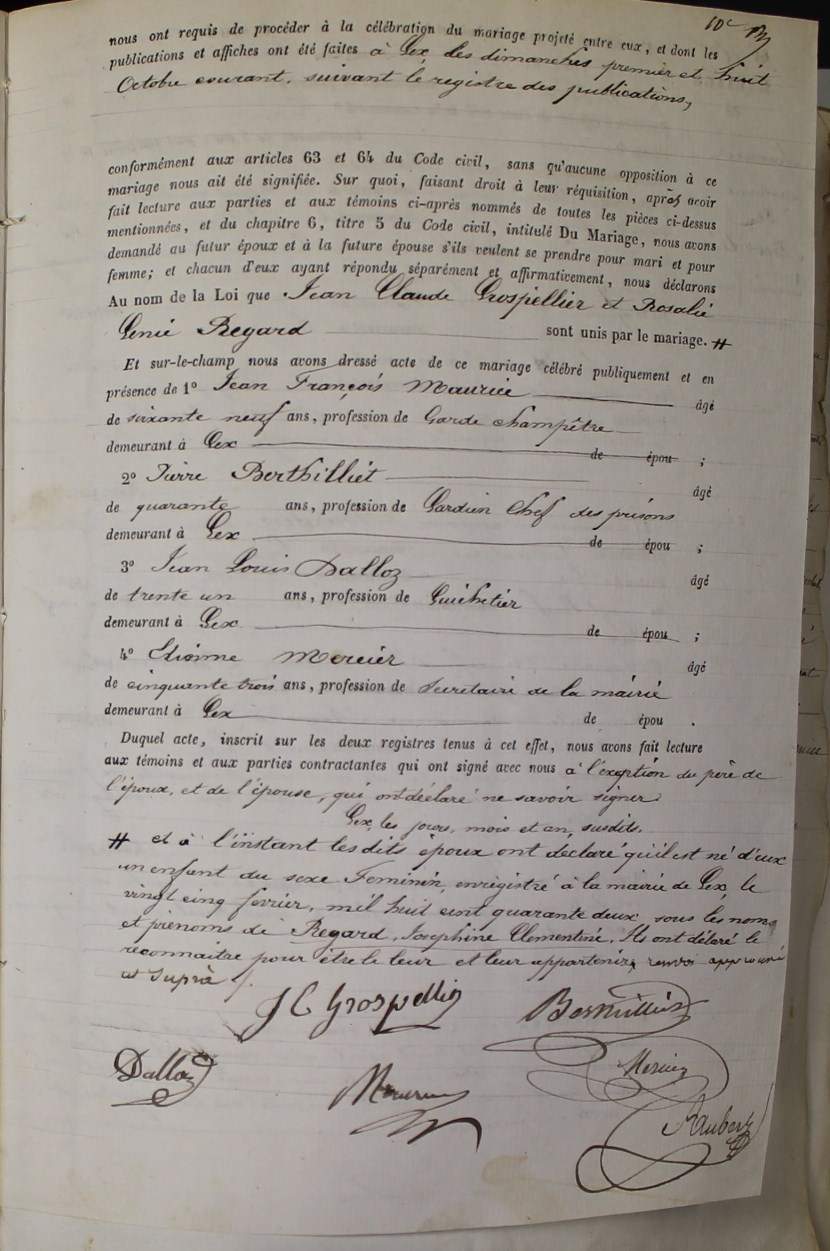 10e
nous ont requis de procéder à la célébration du mariage projeté entre eux, et dont les
publications et affiches ont été faites à Gex les dimanches premier et huit
Octobre courant, suivant le registre des publications,
conformément aux articles 63 et 64 du Code civil, sans qu'aucune opposition à ce
mariage nous ait été signifiée. Sur quoi, faisant droit à leur réquisition, après avoir
fait lecture aux parties et aux témoins ci-après nommés de toutes les pièces ci-dessus
mentionnées, et du chapitre 6, titre 5 du Code civil, intitulé Du Mariage, nous avons
demandé au futur époux et à la future épouse s'ils veulent se prendre pour mari et pour
femme; et chacun d'eux ayant répondu séparément et affirmativement, nous déclarons
Au nom de la Loi que Jean Claude Grospellier et Rosalie
Génie Regard sont unis par le mariage. #
Et sur-le-champ nous avons dressé acte de ce mariage célébré publiquement et en
présence de 1° Jean François Maurice âgé
de soixante neuf ans, profession de Garde champêtre
demeurant à Gex de épou ;
2° Pierre Berthilliet âgé
de quarante ans, profession de Gardien Chef des prisons
demeurant à Gex de épou ;
3° Jean Louis Dalloz âgé
de trente un ans, profession de Guichetier
demeurant à Gex de épou ;
4° Etienne Mercier âgé
de cinquante trois ans, profession de Secretaire de la mairie
demeurant à Gex de épou .
Duquel acte, inscrit sur les deux registres tenus à cet effet, nous avons fait lecture
aux témoins et aux parties contractantes qui ont signé avec nous à l'exeption du père de
l'époux, et de l'épouse, qui ont déclaré ne savoir signer.
Gex, les jours, mois et an, susdits.
# et à l'instant les dits époux ont declaré qu'il est né d'eux
un enfant du sexe Feminin, enrégistré à la mairie de Gex, le
vingt cinq février, mil huit cent quarante deux sous les noms
et prénoms de Regard, Josephine Clementine. Ils ont déclaré le
reconnaitre pour être le leur et leur appartenir, renvoi approuvé
ut Suprà
J C Grospellier Berthilliet
Dalloz Maurice Mercier